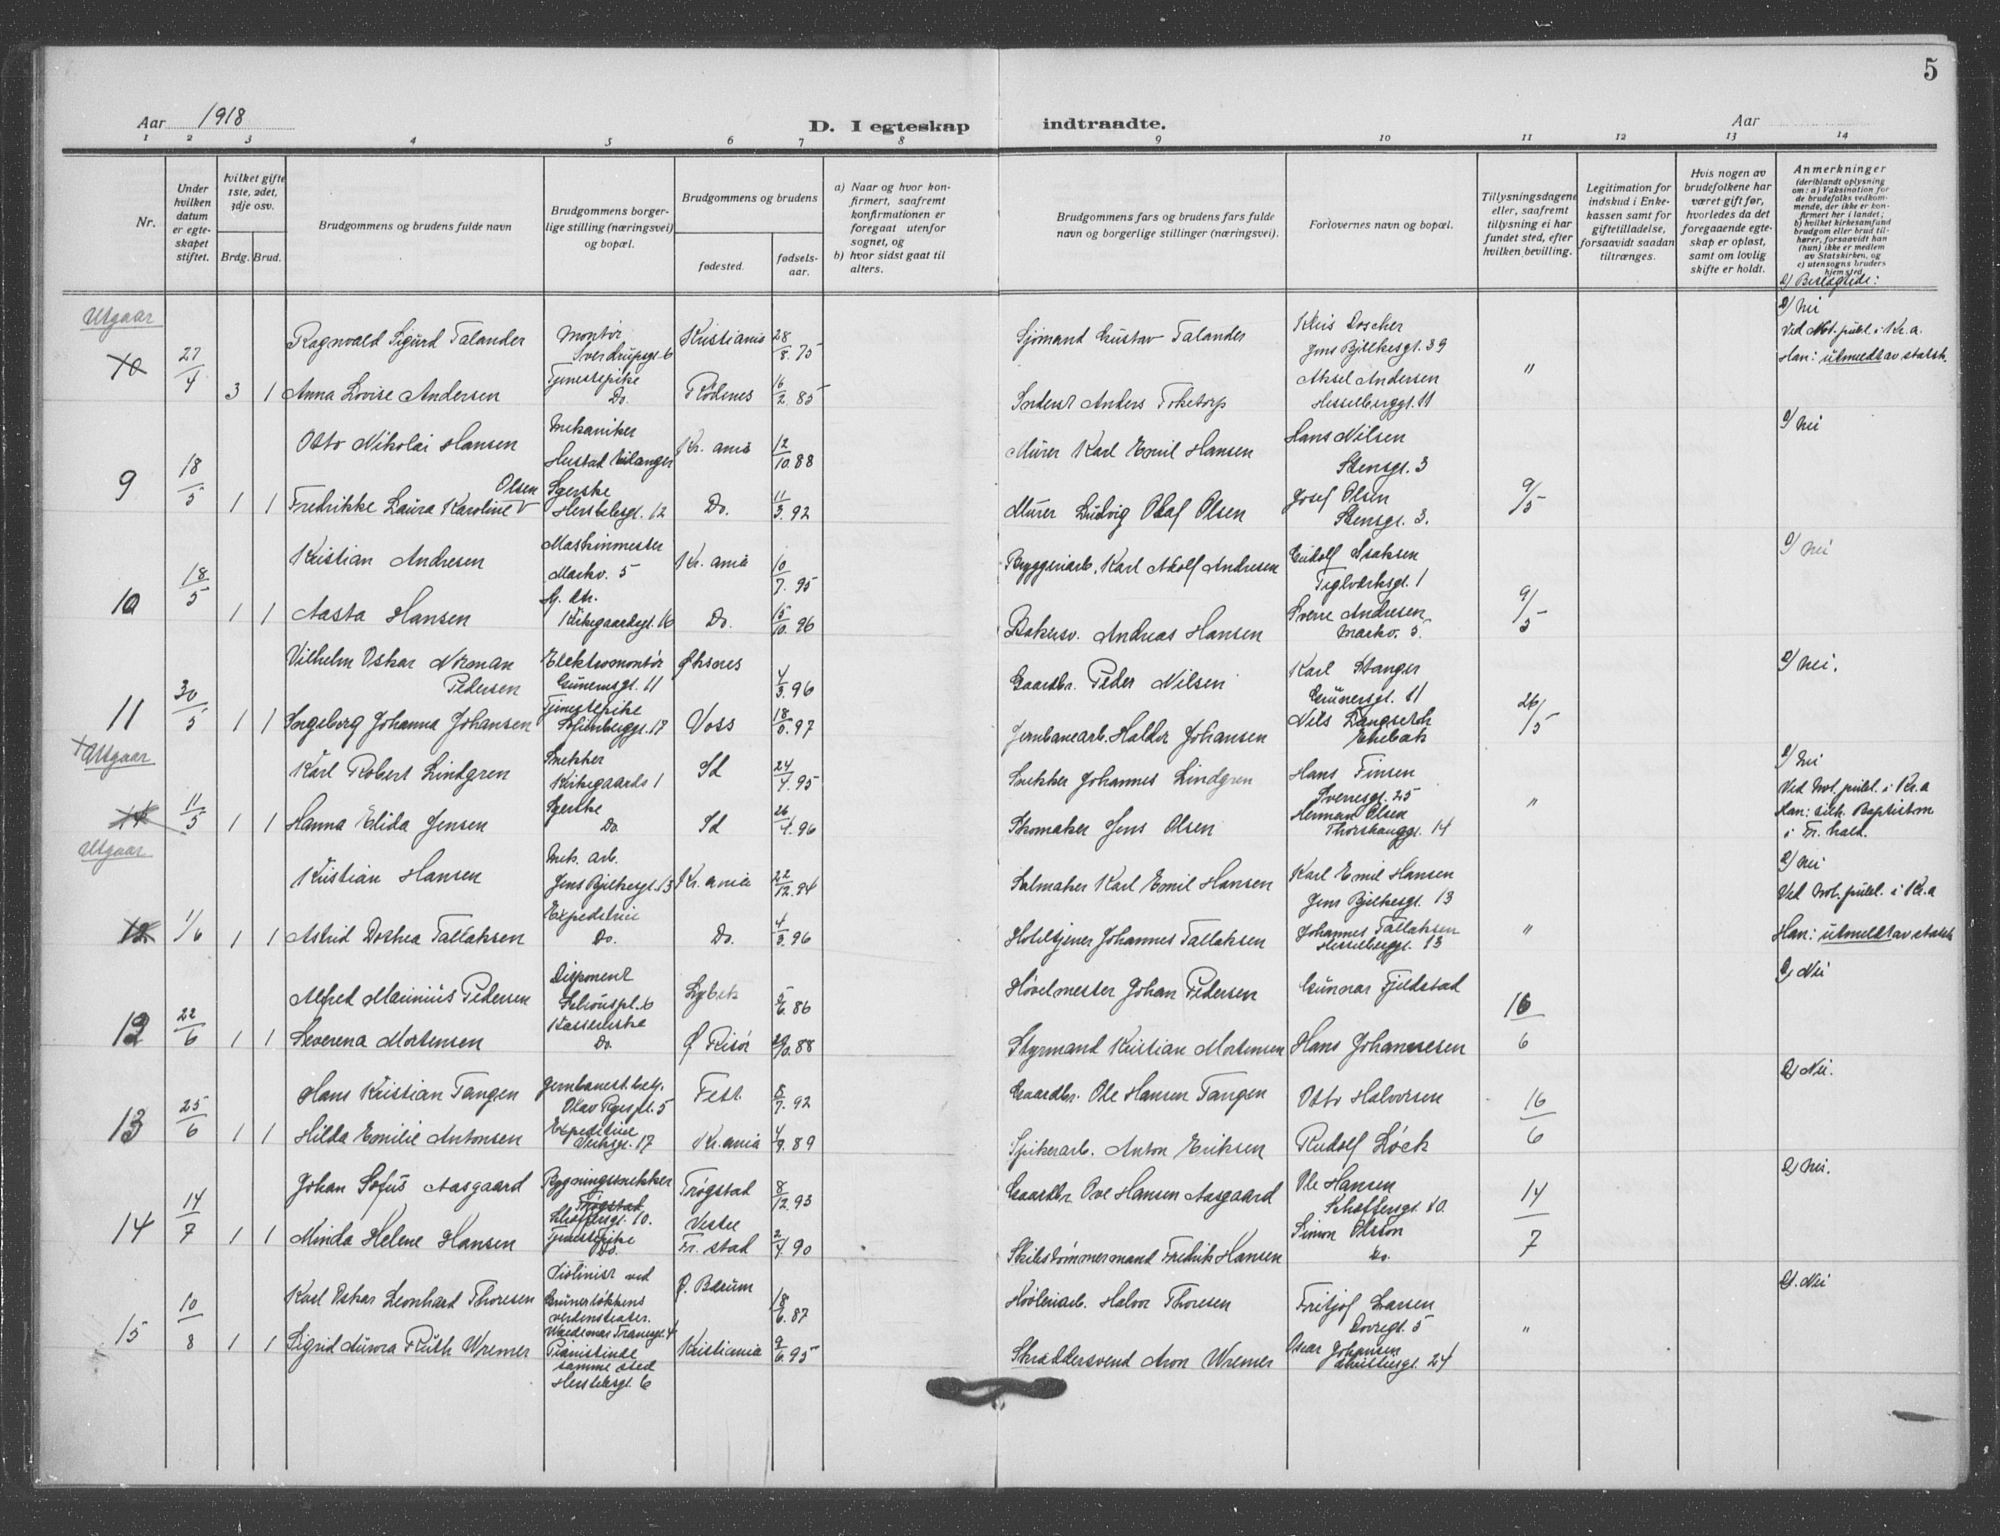 5
Aar 1918
D. I egteskap indtraadte.
Aar
1 2 3 4 5 6 7 8 9 10 11 12 13 14
Nr.
Under hvilken datum er egteskapet stiftet.
hvilket gifte 1ste, 2det, 3dje osv.
Brdg. Brud.
Brudgommens og brudens fulde navn
Brudgommens borgerlige stilling (næringsvei) og bopæl.
Brudgommens og brudens
fødested.
fødselsaar.
a) Naar og hvor konfirmert, saafremt konfirmationen er foregaat utenfor sognet, og
b) hvor sidst gaat til alters.
Brudgommens fars og brudens fars fulde navn og borgerlige stillinger (næringsvei).
Forlovernes navn og bopæl.
Tillysningsdagene eller, saafremt tillysning ei har fundet sted, efter hvilken bevilling.
Legitimation for indskud i Enkekassen samt for giftetilladelse, forsaavidt saadan tiltrænges.
Hvis nogen av brudefolkene har været gift før, hvorledes da det foregaaende egteskap er opløst, samt om lovlig skifte er holdt.
Anmerkninger
(deriblandt oplysning om: a) Vaksination for de brudefolks vedkommende, der ikke er konfirmert her i landet; b) hvilket kirkesamfund brudgom eller brud tilhører, forsaavidt han (hun) ikke er medlem av Statskirken, og c) utensogns bruders hjemsted.
Utgaar
27/4
3 1
Ragnvald Sigurd Talander
Montör Sverdrupsgt. 6
Kristiania 28/8. 75
Sjömand Gustav Talander
Jens Bjelkesgt. 39
Nei
Ved Not. publ. i Kr.a.
Han: utmeldt av statsk.
Anna Lovise Andersen
Tjenestepike Do.
Rödenes 16/2. 85
Anders Toketorp
Aksel Andersen
Hesselberggt. 11
"
9
18/5
1 1
Otto Nikolai Hansen
Mekaniker
Kr. ania 12/10. 88
Murer Karl Emil Hansen
Hans Nilsen
Stensgt. 3
Nei
Fredrikke Laura Karoline Olsen
Syerske
Herslebsgt. 12
Do. 11/3. 92
Murer Ludvig Olaf Olsen
Josef Olsen
Stensgt. 3.
9/5
10
18/5
1 1
Kristian Andresen
Maskinmester
Markv. 5
Kr. ania 10/7. 95
Bryggeriarb. Karl Adolf Andresen
Isaksen
Teglverksgt. 1
Nei
Aasta Hansen
Kirkegaardsgt. 16
Do. 15/10. 96
Bakersv. Andreas Hansen
Sverre Andresen
Markv. 5.
9/5
11
30/5
1 1
Vilhelm Oskar Norman Pedersen
Elektromontör
Grünersgt. 11
Öksnes 4/3. 96
Gaardbr. Peder Nilsen
Karl Stanger
Grünersgt. 11
Nei.
Ingeborg Johanna Johansen
Tjenestepike
Sofienberggt. 17
Voss
Jernbanearb. Halder Johansen
26/5
Utgaar
11/5
1 1
Karl Robert Lindgren
Snekker
Kirkegaards 1
Id 24/4. 95
Snekker Johannes Lindgren
Hans Finsen
Sverresgt. 25
Nei
Ved Not. publ. i Kr.a
Han: tilh. Baptistsm
i Fr. hald.
Hanna Elida Jensen
Syerske Do.
Id 26/4. 96
Skomaker Jens Olsen
Herman Olsen
Thorshauggt. 14
"
Utgaar
12
1/6
1 1
Kristian Hansen
Mek. arb.
Jens Bjelkesgt. 13
Kr. ania 22/12. 94
Salmaker Karl Emil Hansen
Karl Emil Hansen
Jens Bjelkesgt. 13
Nei
Ved Not. publ. i Kr.a
Han: utmeldt av statsk
Astrid Dorthea Tallaksen
Expeditrice Do.
Do. 4/3. 96
Hoteltjener Johannes Tallaksen
Johannes Tallaksen
Hesselberggt. 13
"
12
22/6
1 1
Alfred Marinius Pedersen
Disponent
Schouspl. 6
Lybek 5/6. 86
Hövelmester Johan Pedersen
Gunnar Fjeldstad
Nei
Severena Mortensen
Kassererske Do.
Ø Risör
Styrmand Kristian Mortensen
Hans Johannesen
16/6
13
25/6
1 1
Hans Kristian Tangen
Jernbanest.betj.
Olav Ryes pl. 5
Fet 8/7. 92
Gaardbr. Ole Hansen Tangen
Otto Halvorsen
Nei.
Hilda Emilie Antonsen
Expeditrice
Kr. ania 4/9. 89
Spikerarb. Anton Eriksen
Rudolf Löck
16/6
14
14/7
1 1
Johan Sofus Aasgaard
Bygningssnekker
Trögstad
Schæffersgt. 10.
Trögstad 8/12. 93
Gaardbr Ove Hansen Aasgaard
Ole Hansen
Schæffersgt. 10.
Nei.
Minda Helene Hansen
Tjenestepike Do.
Vestre Fr. stad 2/4. 90
Skibstömmermand Fredrik Hansen
Simon Olsson
Do.
14/7
15
10/8
1 1
Karl Oskar Leonhard Thoresen
Violinist ved
Grünerløkkens
verdensteater.
Waldemar Tranesgt. 4
Ø. Bærum 18/6. 87
Hövleriarb. Halvor Thoresen
Fritjof Larsen
Dovregt. 5
Nei
Sigrid Aurora Ruth Wremer
Pianistinde
samme sted
Herslebsgt. 6
Kristiania 9/6. 95
Skræddersvend Aron Wremer
Oscar Johansen
24
"